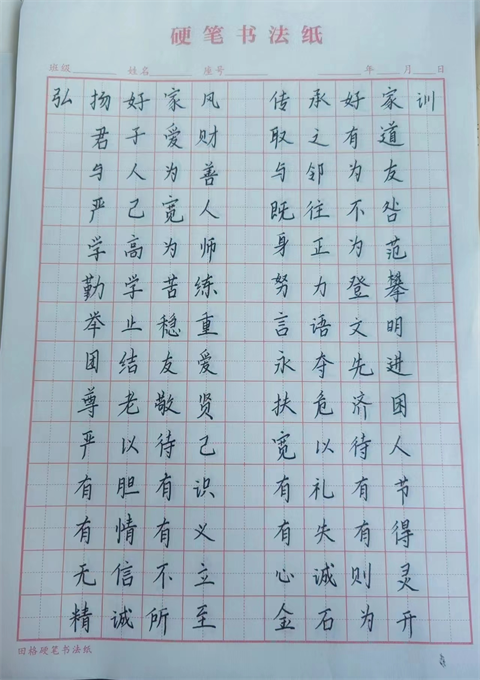 硬笔书法纸
班级 姓名 座号 年 月 日
弘扬好家风 传承好家训
君子爱财 取之有道
与人为善 与邻为友
严己宽人 既往不咎
学高为师 身正为范
勤学苦练 努力登攀
举止稳重 言语文明
团结友爱 永夺先进
尊老敬贤 扶危济困
严以待己 宽以待人
有胆有识 有礼有节
有情有义 有失有得
无信不立 心诚则灵
精诚所至 金石为开
田格硬笔书法纸